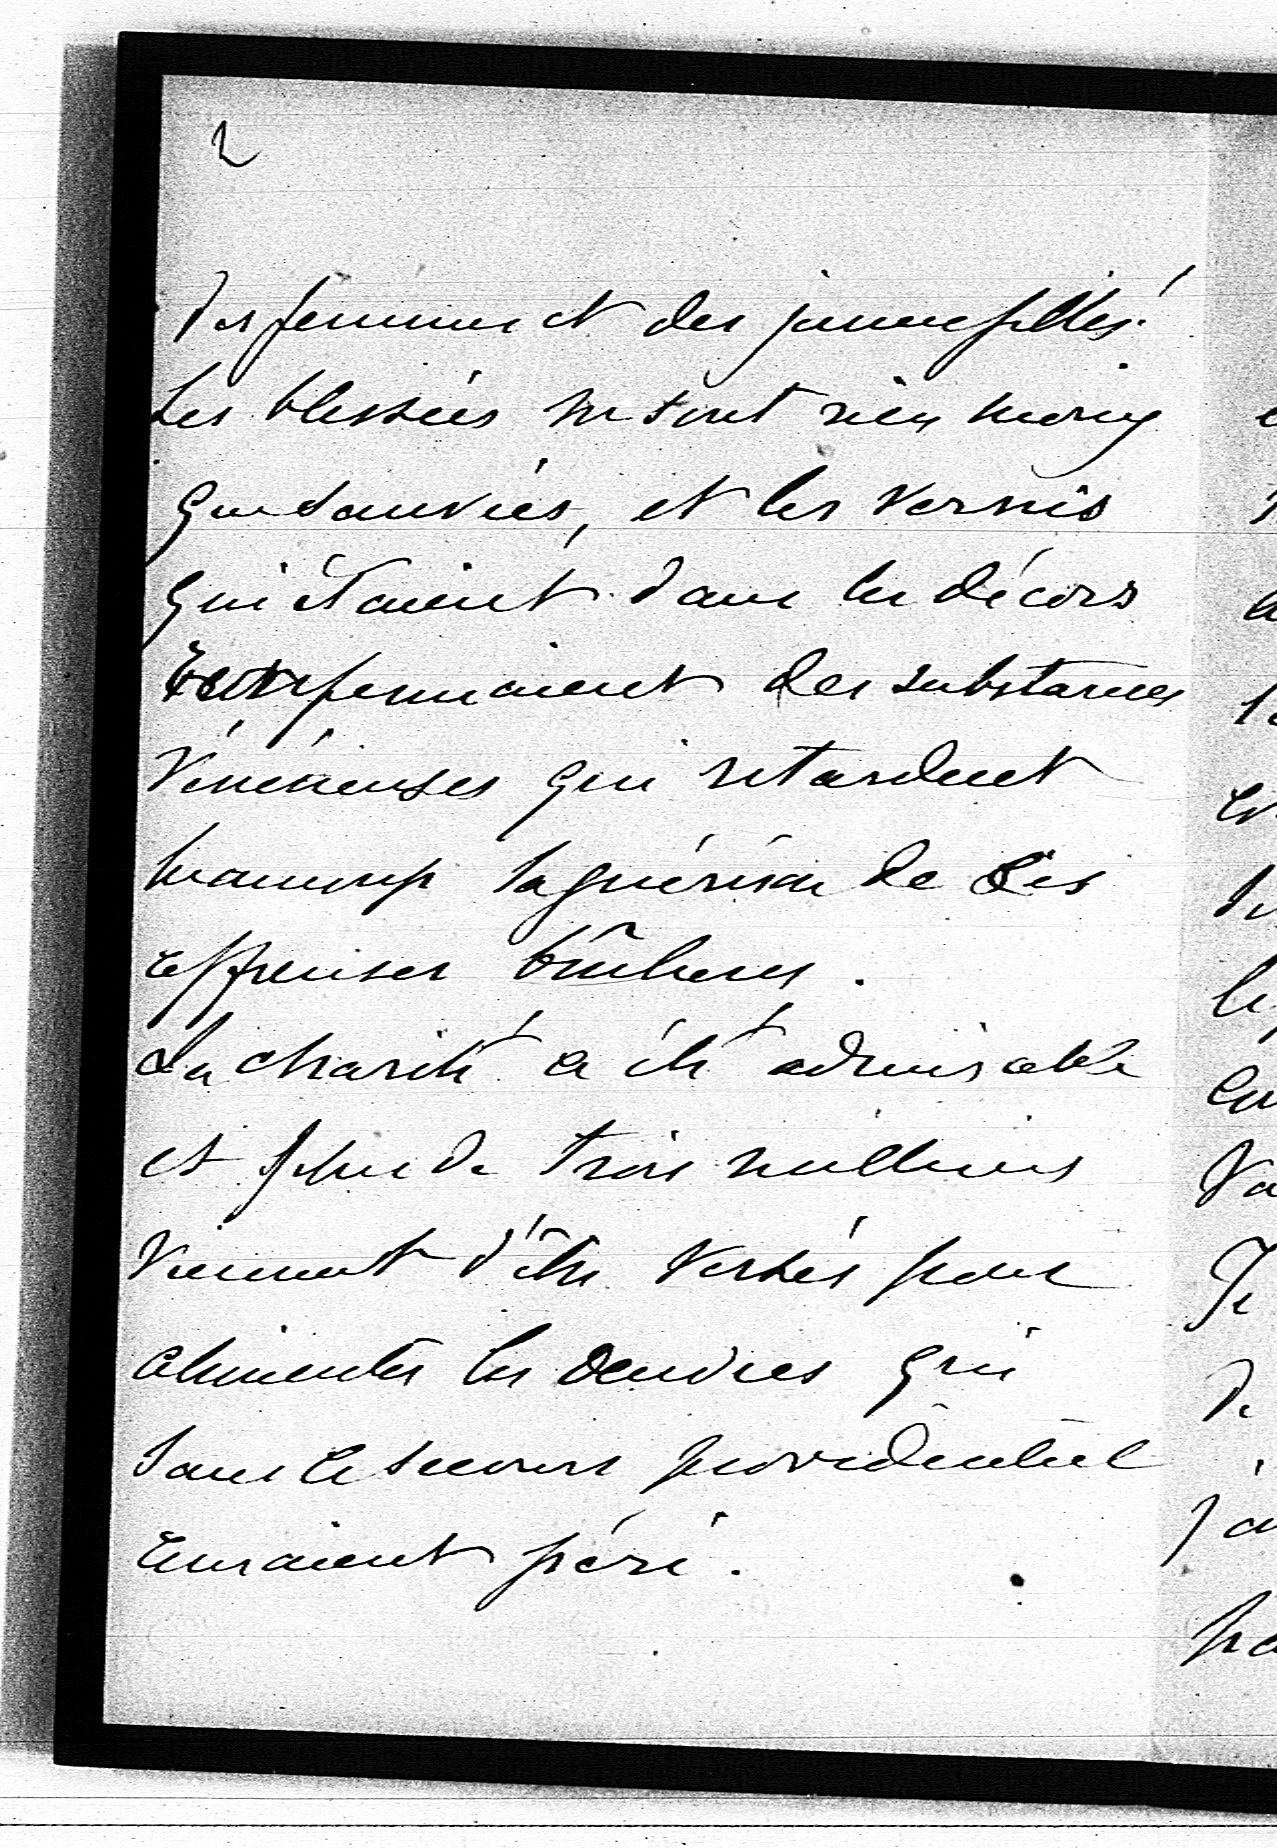 2
des femmes et des jeunes filles.
Les blessées ne sont rien moins
que sauvées, et les vernis
qui étaient dans les décors
renfermaient des substances
vénéneuses qui retardent
beaucoup la guérison de ces
affreuses brûlures.
La charité a été admirable
et plus de trois millions
viennent d'être versés pour
alimenter les œuvres qui
sans ce secours providentiel
auraient péri.